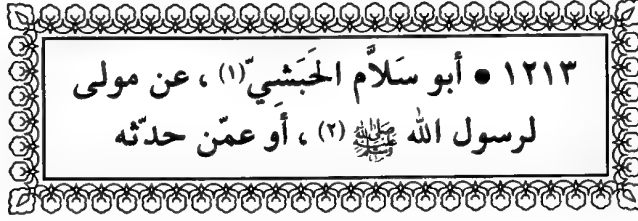 ١٢١٣ • أبو سَلاَّم الحَبَشيّ(١) ، عن مولى
لرسول الله ﷺ (٢) ، أو عمّن حدّثه